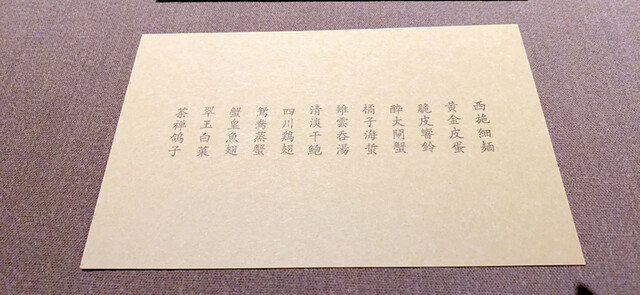 西施細麺
黄金皮蛋
脆皮響鈴
酔大閘蟹
橘子海蜇
雉雲呑湯
清淡干鮑
四川鶏翅
鴛鴦蒸蟹
蟹皇魚翅
翠玉白菜
茶禅鴿子